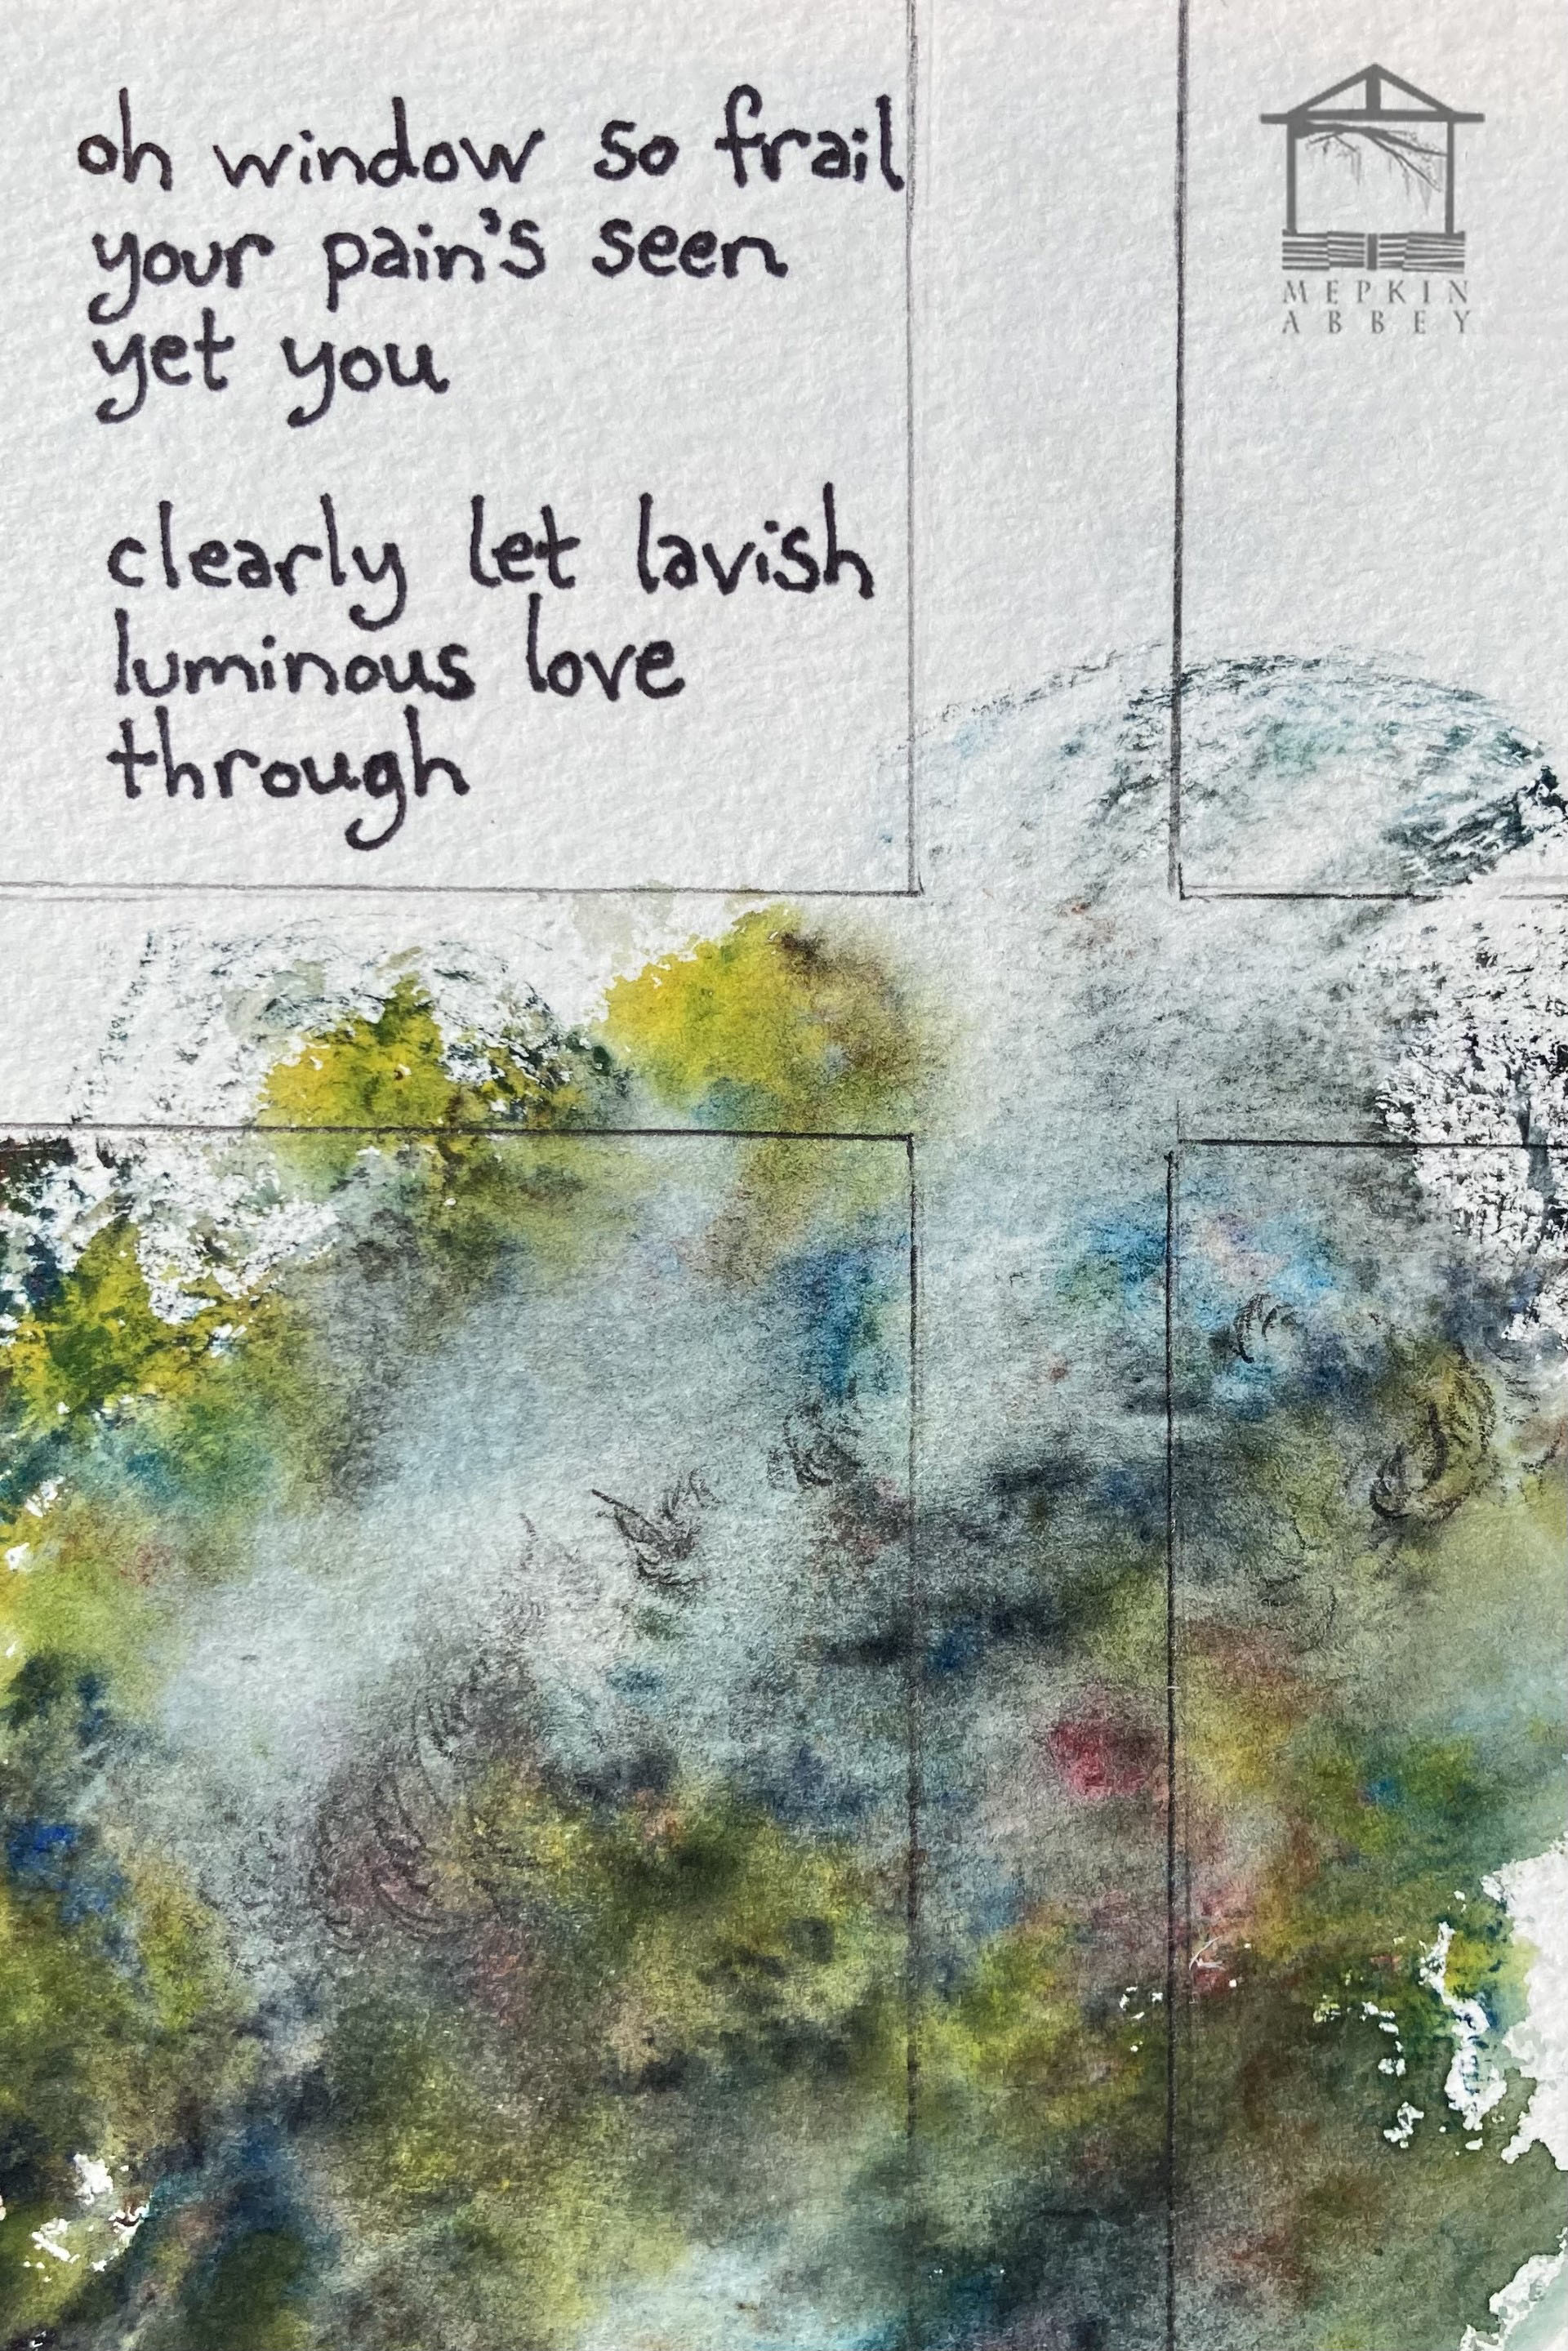 oh window so frail
your pain's seen
yet you
clearly let lavish
luminous love
through
MEPKIN
ABBEY